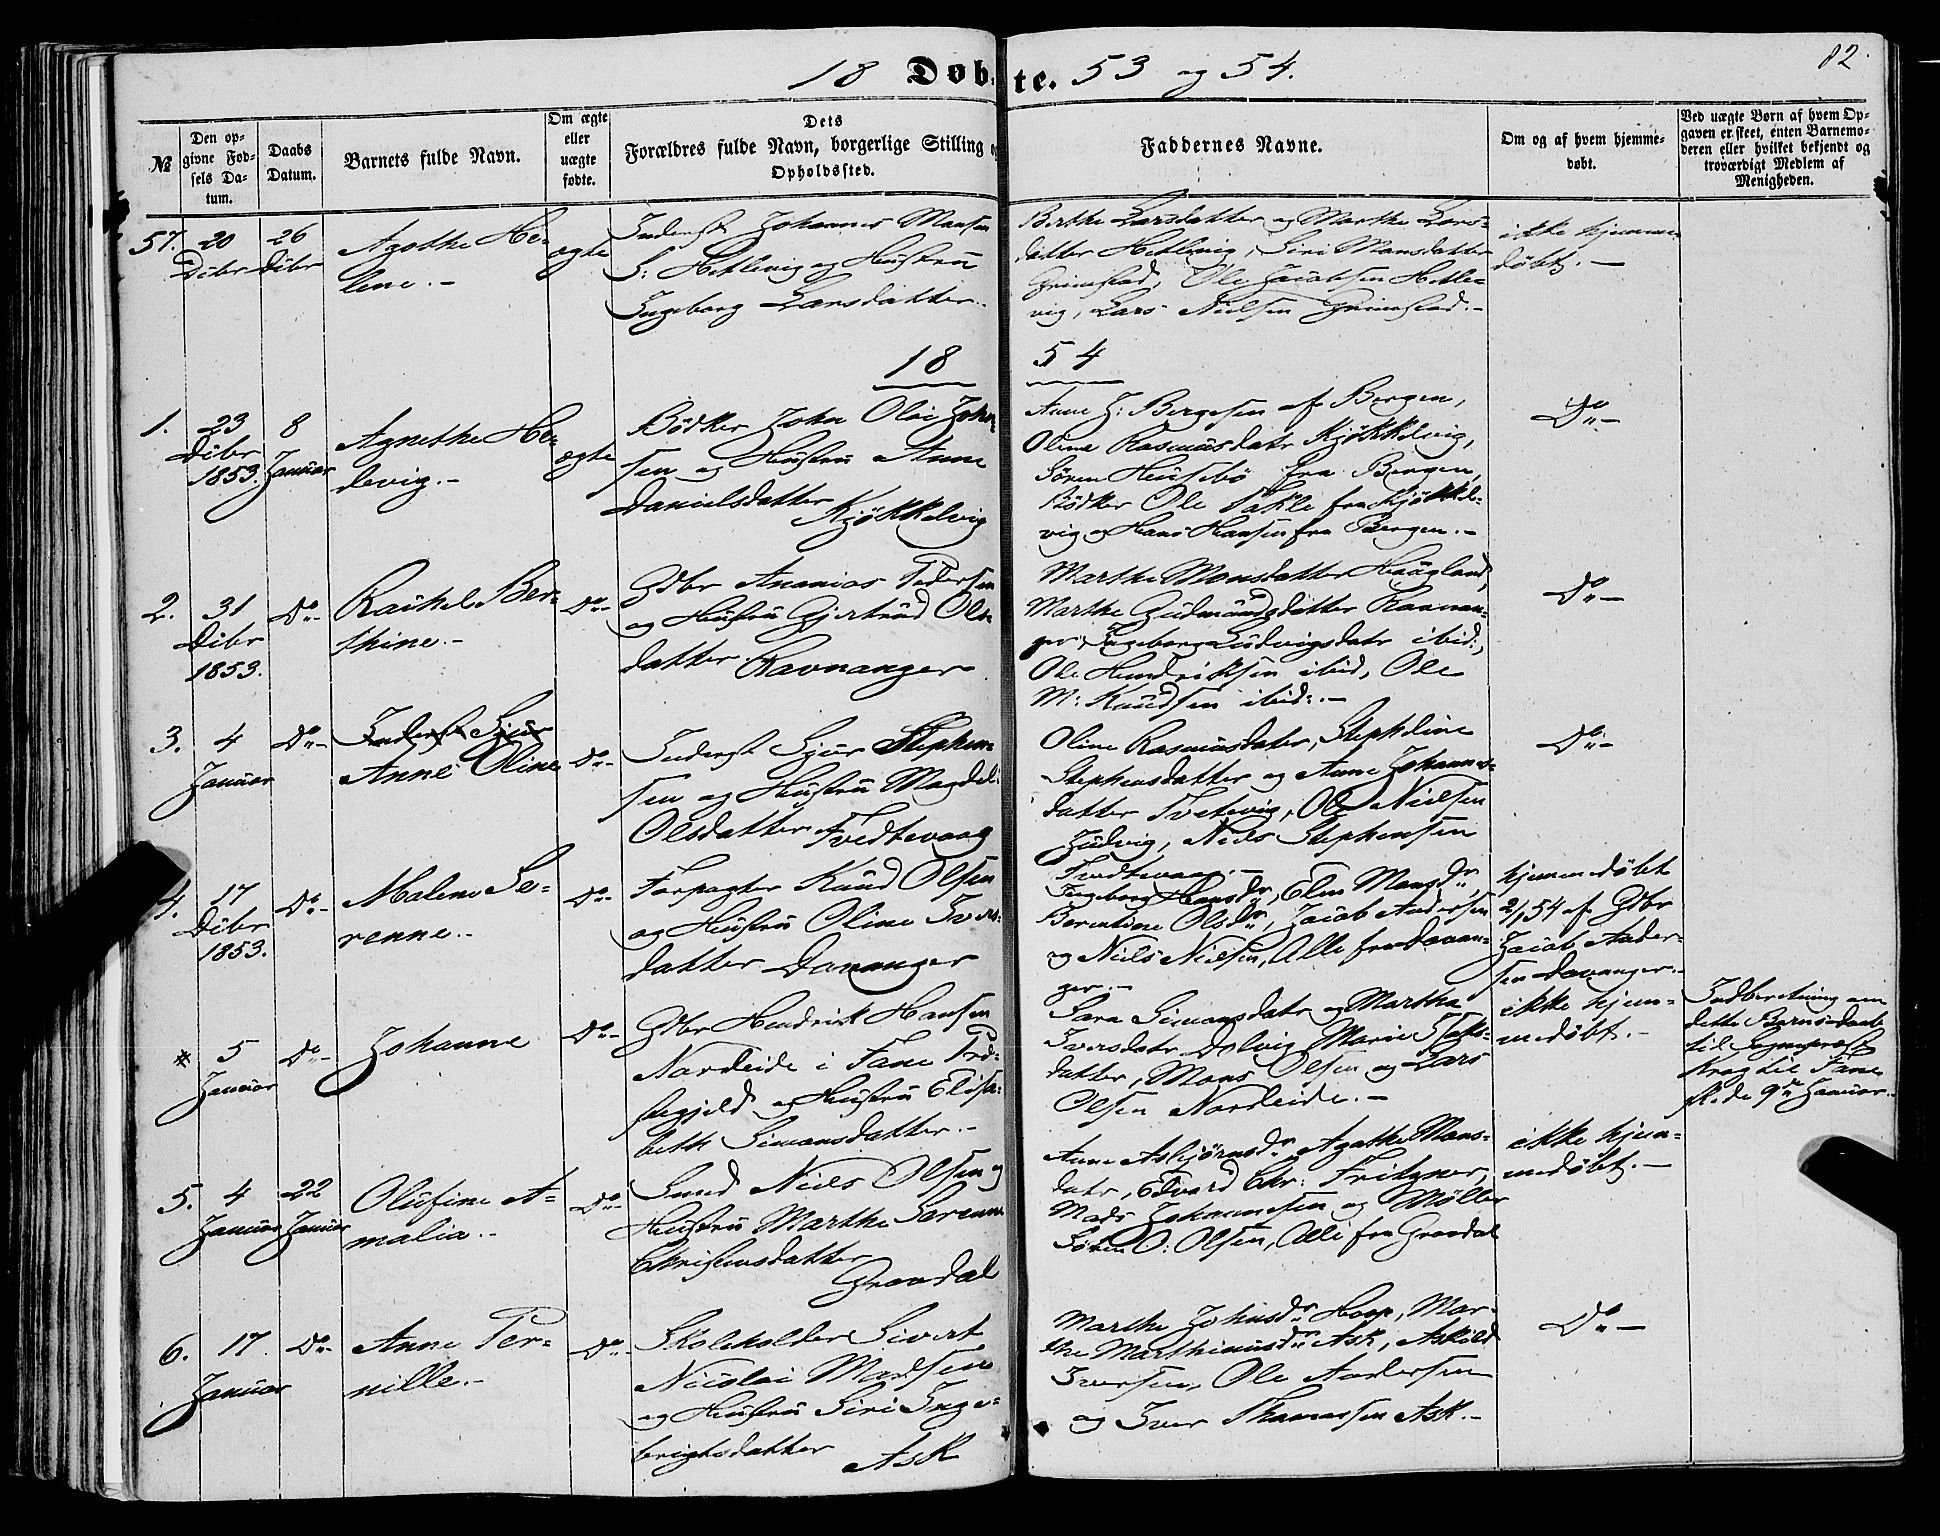 18 Døbte. 53 og 54.
82.
№
Den opgivne Fødsels Datum.
Daabs Datum.
Barnets fulde Navn.
Om ægte eller uægte fødte.
Dets Forældres fulde Navn, borgerlige Stilling og Opholdssted.
Faddernes Navne.
Om og af hvem hjemmedøbt.
Ved uægte Børn af hvem Opgaven er skeet, enten Barnemoderen eller hvilket bekjendt og troværdigt Medlem af Menigheden.
57.
20
Dcbr
26
Dcbr
Agathe He-
lene.-
ægte
Inderst Johannes Monsen
S: Hetlevig og Hustru
Ingeborg Larsdatter.
Berthe Larsdatter og Marthe Lars-
datter Hetlevig, Siri Monsdatter
Grimstad, Ole Jacobsen Hetle-
vig, Lars Nielsen Grimstad.-
ikke hjemme
døbt.-
18 54
1.
23
Dcbr
1853.
8
Januar
Agnethe He-
devig.-
ægte
Bødker John Olai John-
sen og Hustru Anne
Danielsdatter
Kjøkkelvig
Anne J: Bergesen af Bergen,
Oline Rasmusdatr Kjøkkelvig,
Sören Heusebö fra Bergen,
Bødker Ole Takle fra Kjøkkel-
vig og Hans Hansen fra Bergen.-
Do-
2.
31
Dcbr
1853.
Do-
Rachel Ber-
thine.-
Do-
Gdbr Ananias Pedersen
og Hustru Gjertrud Ols-
datter Ravnanger
Marthe Monsdatter Haugland,
Marthe Gudmundsdatter Ravnan-
ger, Ingeborg Ludvigsdatr ibid:,
Ole Hendriksen ibid, Ole
M: Knudsen ibid:.-
Do-
3.
4
Januar
Do-
Inderst Sjur
Anne Oline
Do-
Inderst Sjur Stephen-
sen og Hustru Magdeli
Olsdatter Tvedtevaag
Oline Rasmusdater, Stephline
Stephensdatter og Anne Johannes-
datter Tvetevig, Ole Nielsen
Judvig, Niels Stephensen
Tvedtevaag.-
Do-
4.
17
Dcbr
1853.
Do-
Malene Se-
renne.-
Do-
Forpagter Knud Olsen
og Hustru Oline Ivers-
datter Davanger
Ingeborg Hansdr, Elen Monsdr,
Berentine Olsdr, Jacob Andersen
og Niels Nielsen, Alle fra Davan-
ger.-
hjemmedøbt
2/1 54 af Gdbr
Jacob Ander-
sen Davanger.-
*
5
Januar
Do-
Johanne
Do-
Gdbr Hendrik Hansen
Nordeide i Fane Præ-
stegjeld og Hustru Elisa-
beth Simonsdatter.-
Sara Simonsdatr og Martha
Iversdatr Dolvig, Marie
datter, Mons Olsen og Lars
Olsen Nordeide.-
ikke hjem-
medøbt.-
Indberetning om
dette Barns Daab
til Sognepræst
Krog til Fane
sk: de 9de Januar.-
5.
4
Januar
22
Januar
Olufine A-
malia.-
Do-
Smed Niels Olsen og
Hustru Marthe Serenne
Christensdatter
Gravdal
Anne Asbjørnsdr, Agathe Mons-
datr, Edvard Chr: Fritzner,
Mads Johannesen og Møller
Sören O: Olsen, Alle fra Gravdal
ikke hjem-
medøbt.-
6.
17
Januar
Do-
Anne Per-
nille.-
Do-
Skoleholder Sivert
Nicolai Madsen
og Hustru Siri Inge-
brigtsdatter Ask
Marthe Johnsdr Hope, Mar-
the Marthinusdr Ask, Askild
Iversen, Ole Andersen
og Iver Thomassen Ask.-
Do-